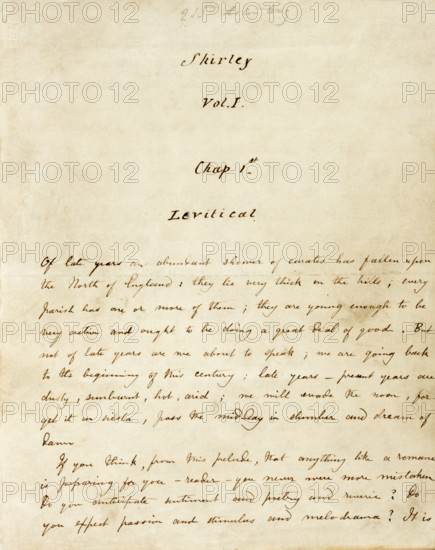 Shirley
Vol. I.
Chap 1st.
Levitical
Of late years an abundant shower of curates has fallen upon
the North of England: they lie very thick on the hills; every
Parish has one or more of them; they are young enough to be
very active and ought to be doing a great deal of good. But
not of late years are we about to speak; we are going back
to the beginning of this century: late years – present years are
dusty, sunburnt, hot, arid; we will evade the noon, for-
get it in siesta, pass the mid-day in slumber and dream of
dawn
If you think, from this prelude, that anything like a romance
is preparing for you – reader – you never were more mistaken
Do you anticipate sentiment and poetry and reverie? Do
you expect passion and stimulus and melodrama? It is
PHOTO 12